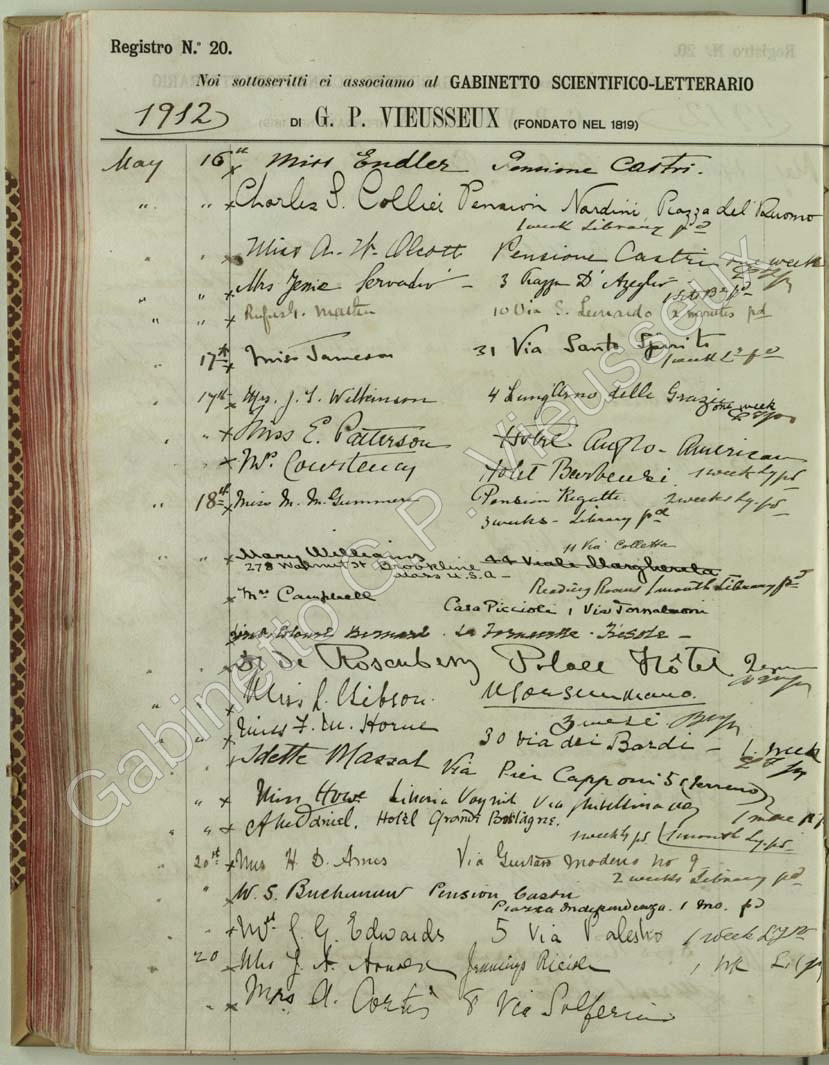 Registro N.º 20.
Noi sottoscritti ci associamo al GABINETTO SCIENTIFICO-LETTERARIO
1912
DI G. P. VIEUSSEUX (FONDATO NEL 1819)
May 16th x Miss Endler Pensione Castri.
" " x Charles S. Collier Pension Nardini, Piazza del Duomo
1 week Library pd
" " x Miss A. W. Alcott Pensione Castri one week
" " x Mrs Jenie Servadio - 3 Piazza D'Azeglio
" " x Rufus G. Mather 10 Via S. Leonardo 2 months pd
17th x Miss Jameson 31 Via Santo Spirito
1 week L pd
17th x Mrs. J. S. Wilkinson 4 Lung'Arno delle Grazie one week
" x Miss E. Patterson Hotel Anglo-American
x Mrs Courtenay Hotel 1 week Ly pd
" 18th x Miss M. M. Gummere Pension Rigatti 2 weeks Ly. pd
3 weeks - Library pd
11 Via Colletta
" " x Mary Williams 44 Viale Margherita
278 Walnut St Brookline
Mass U.S.A - Reading Rooms 1 month Library pd
" x Mrs Campbell Casa Picciola 1 Via Tornabuoni
Bernard Fiesole -
" x de Rosenberg Palace Hôtel
" x Miss L. Gibson. Monsummano.
3 mesi
" " x Miss F. M. Horne 30 Via dei Bardi - 1 week
" Odette Massat Via Pier Capponi 5 (terreno)
" x Miss Howe Via 1 mo
" " x Hotel Grande Bretagne.
1 week pd 1 month Ly. pd
20th x Miss H. D. Ames Via Gustavo Modena No 9
2 weeks Library pd
" x W. S. Buchanan Pension Castri
Piazza Independenza. 1 mo. pd
" x Mrs J. G. Edwards 5 Via Palestro 1 week
20 x Mrs J. A. Jennings Riccioli 1 wk
" x Mrs A. Cortis 8 Via Solferino
Gabinetto G. P. Vieusseux